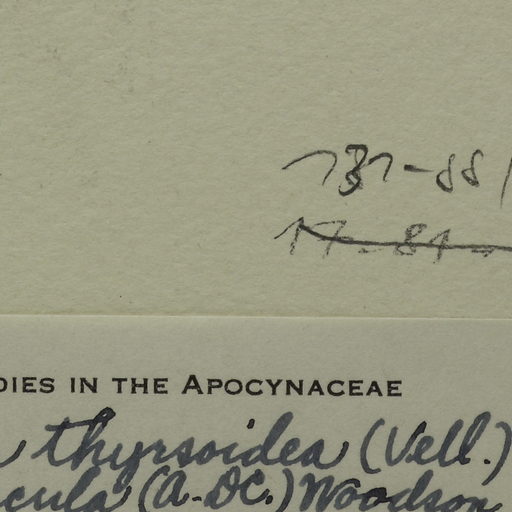 131-88
17-81-
DIES IN THE APOCYNACEAE
thyrsoidea (Vell.)
cula (A-DC.) Woodson